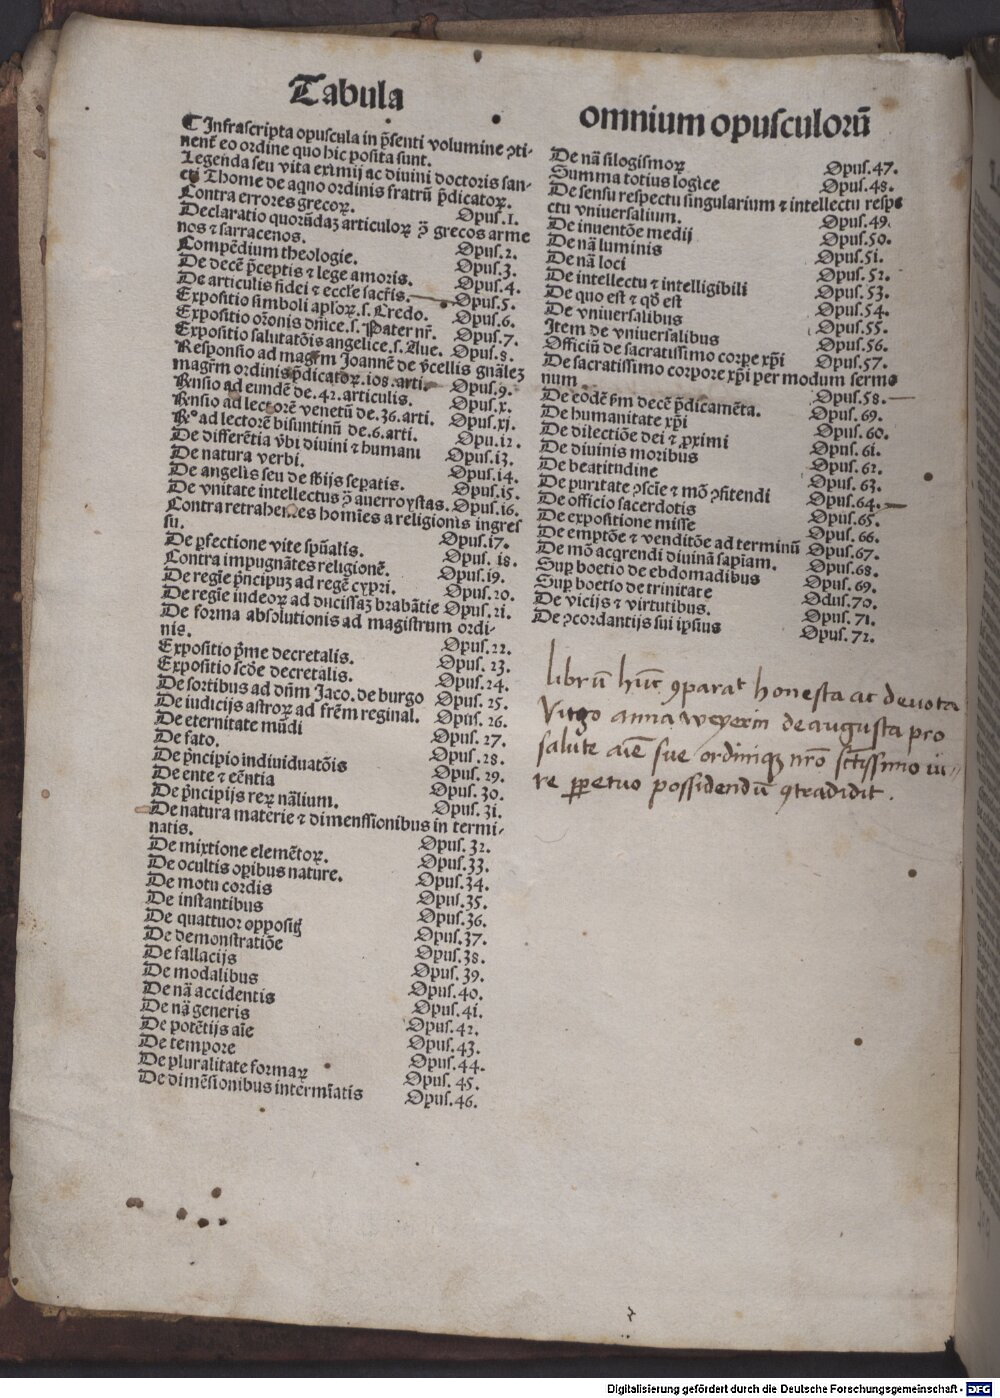 Tabula
omnium opusculorũ
Infrascripta opuscula in p̃senti volumine ꝯti-
nent̃ eo ordine quo hic posita sunt.
Legenda seu vita eximij ac diuini doctoris san-
cti Thome de aq̃no ordinis fratrũ p̃dicatoꝝ. Opus.1.
Contra errores grecoꝝ.
Declaratio quorũdaꝫ articuloꝝ ꝯ̃ grecos arme
nos ⁊ sarracenos. Opus.2.
Compẽdium theologie. Opus.3.
De decẽ p̃ceptis ⁊ lege amoris. Opus.4.
De articulis fidei ⁊ eccl̃e sacr̃is. Opus.5.
Expositio simboli apl̃oꝝ.s. Credo. Opus.6.
Expositio or̃onis dñice.s. Pater nr̃. Opus.7.
Expositio salutatõis angelice.s. Aue. Opus.8.
Responsio ad magr̃m Joannẽ de v̓cellis gnãleꝫ
magr̃m ordinis p̃dicatoꝝ.108.arti. Opus.9.
Rñsio ad eundẽ de.42. articulis. Opus.x.
Rñsio ad lectorẽ venetũ de.36.arti. Opus.xj.
Rº ad lectorẽ bisuntinũ de.6.arti. Opu.12.
De differẽtia v̓bi diuini ⁊ humani Opus.13.
De natura verbi. Opus.14.
De angelis seu de sb̃ijs seꝑatis. Opus.15.
De vnitate intellectus ꝯ̃ auerroystas. Opus.16.
Contra retrahentes homĩes a religionis ingres
su. Opus.17.
De ꝑfectione vite spũalis. Opus. 18.
Contra impugnãtes religionẽ. Opus.19.
De regĩe p̃ncipuꝫ ad regẽ cypri. Opus.20.
De regĩe iudeoꝝ ad ducissaꝫ brabãtie Opus.21.
De forma absolutionis ad magistrum ordi-
nis. Opus.22.
Expositio p̃me decretalis. Opus. 23.
Expositio scd̃e decretalis. Opus.24.
De sortibus ad dñm Jaco. de burgo Opus. 25.
De iudicijs astroꝝ ad frẽm reginal. Opus. 26.
De eternitate mũdi Opus. 27.
De fato. Opus.28.
De p̃ncipio indiuiduatõis Opus.29.
De ente ⁊ eẽntia Opus. 30.
De p̃ncipijs reꝝ nãlium. Opus. 31.
De natura materie ⁊ dimenssionibus in termi-
natis. Opus. 32.
De mixtione elemẽtoꝝ. Opus.33.
De ocultis oꝑibus nature. Opus.34.
De motu cordis Opus.35.
De instantibus Opus.36.
De quattuor oppositꝭ Opus.37.
De demonstratiõe Opus.38.
De fallacijs Opus. 39.
De modalibus Opus.40.
De nã accidentis Opus.41.
De nã generis Opus.42.
De potẽtijs aĩe Opus.43.
De tempore Opus.44.
De pluralitate formaꝝ Opus. 45.
De dimẽsionibus intermĩatis Opus.46.
De nã silogismoꝝ Opus.47.
Summa totius logice Opus.48.
De sensu respectu singularium ⁊ intellectu respe
ctu vniuersalium. Opus.49.
De inuentõe medij Opus.50.
De nã luminis Opus.51.
De nã loci Opus.52.
De intellectu ⁊ intelligibili Opus.53.
De quo est ⁊ qd̃ est Opus.54.
De vniuersalibus Opus.55.
Item de vniuersalibus Opus.56.
Officiũ de sacratissimo corꝑe xp̃i Opus.57.
De sacratissimo corpore xp̃i per modum sermo
num Opus.58.
De eodẽ ẜm decẽ p̃dicamẽta. Opus. 69.
De humanitate xp̃i Opus. 60.
De dilectiõe dei ⁊ ꝓximi Opus. 61.
De diuinis moribus Opus. 62.
De beatitudine Opus. 63.
De puritate ꝯscĩe ⁊ mõ ꝯfitendi Opus.64.
De officio sacerdotis Opus.65.
De expositione misse Opus. 66.
De emptõe ⁊ venditõe ad terminũ Opus.67.
De mõ acq̃rendi diuinã sapĩam. Opus.68.
Suꝑ boetio de ebdomadibus Opus. 69.
Suꝑ boetio de trinitate Odus.70.
De vicijs ⁊ virtutibus. Opus. 71.
De ꝯcordantijs sui ip̃sius Opus. 72.
librũ hũc ꝯparat honesta ac deuota
Virgo anna weyerin de augusta pro
salute aĩe sue ordiniqꝫ nr̃o sct̃issimo iu
re ꝑpetuo possidendũ ꝯtradidit.
Digitalisierung gefördert durch die Deutsche Forschungsgemeinschaft - DFG